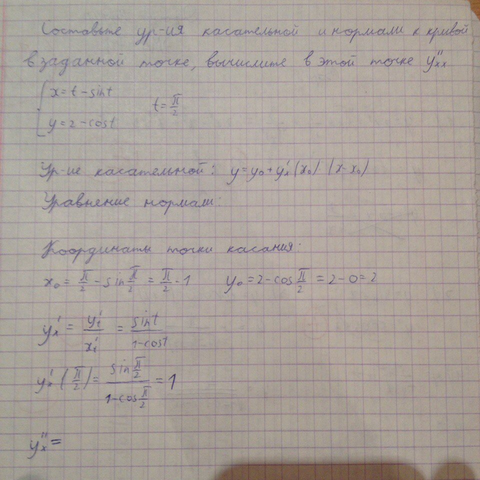 Составьте ур-ия касательной и нормали к кривой
в заданной точке, вычислите в этой точке y''xx
{ x=t-sint t=π/2
y=2-cost
Ур-ие касательной: y=y₀+y'x(x₀) (x-x₀)
Уравнение нормали:
Координаты точки касания:
x₀=π/2-sin π/2=π/2-1 y₀=2-cos π/2=2-0=2
y'x=y't/x't=sint/(1-cost)
y'x(π/2)=sin π/2/(1-cos π/2)=1
y''x=